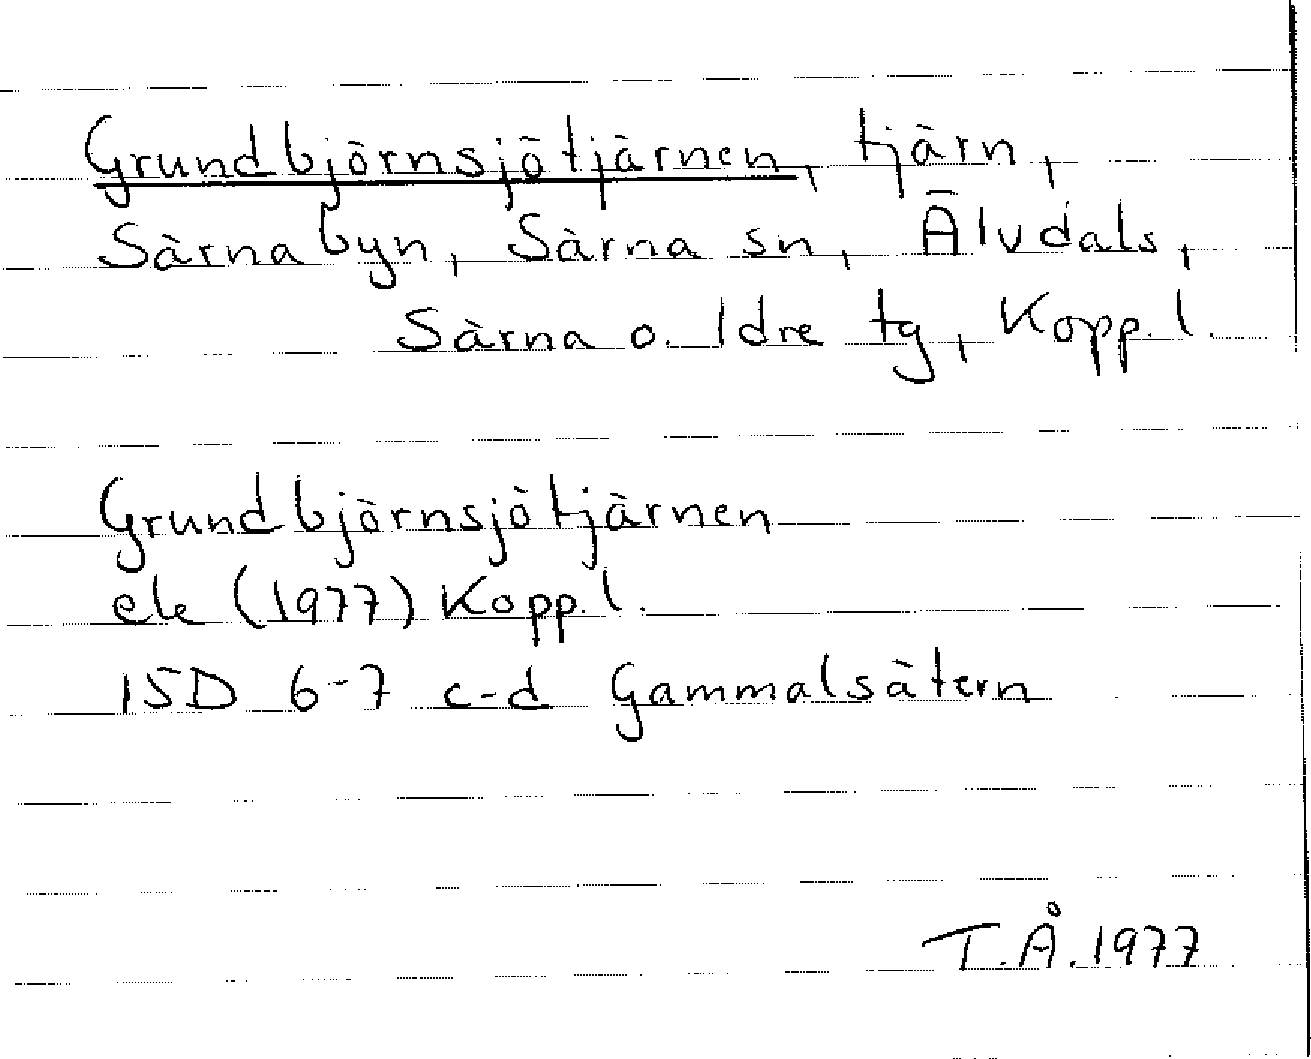 Grundbjörnsjötjärnen, tjärn,
Särnabyn, Särna sn, Älvdals,
Särna o. Idre tg, Kopp. l.
Grundbjörnsjötjärnen
ek (1977) Kopp. l.
15D 6-7 c-d Gammalsätern
T.Å. 1977